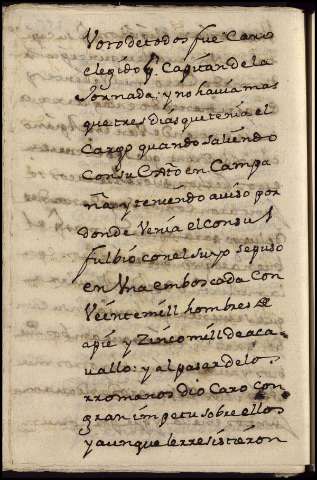 Voto de todos fue Caro
elegido p.r Capitan de la
Jornada: y no havia mas
que tres dias que tenia el
Cargo quando saliendo
Con su Exto en Campa
ña y teniendo aviso por
donde Venia el Consul
fulbio con el Suyo se puso
en Una emboscada Con
Veinte mill hombres de
apie y Zinco mill de aca-
vallo: y al pasar de lo
rromanos dio Caro con
gran impetu sobre ellos
y aunque le rresistieron